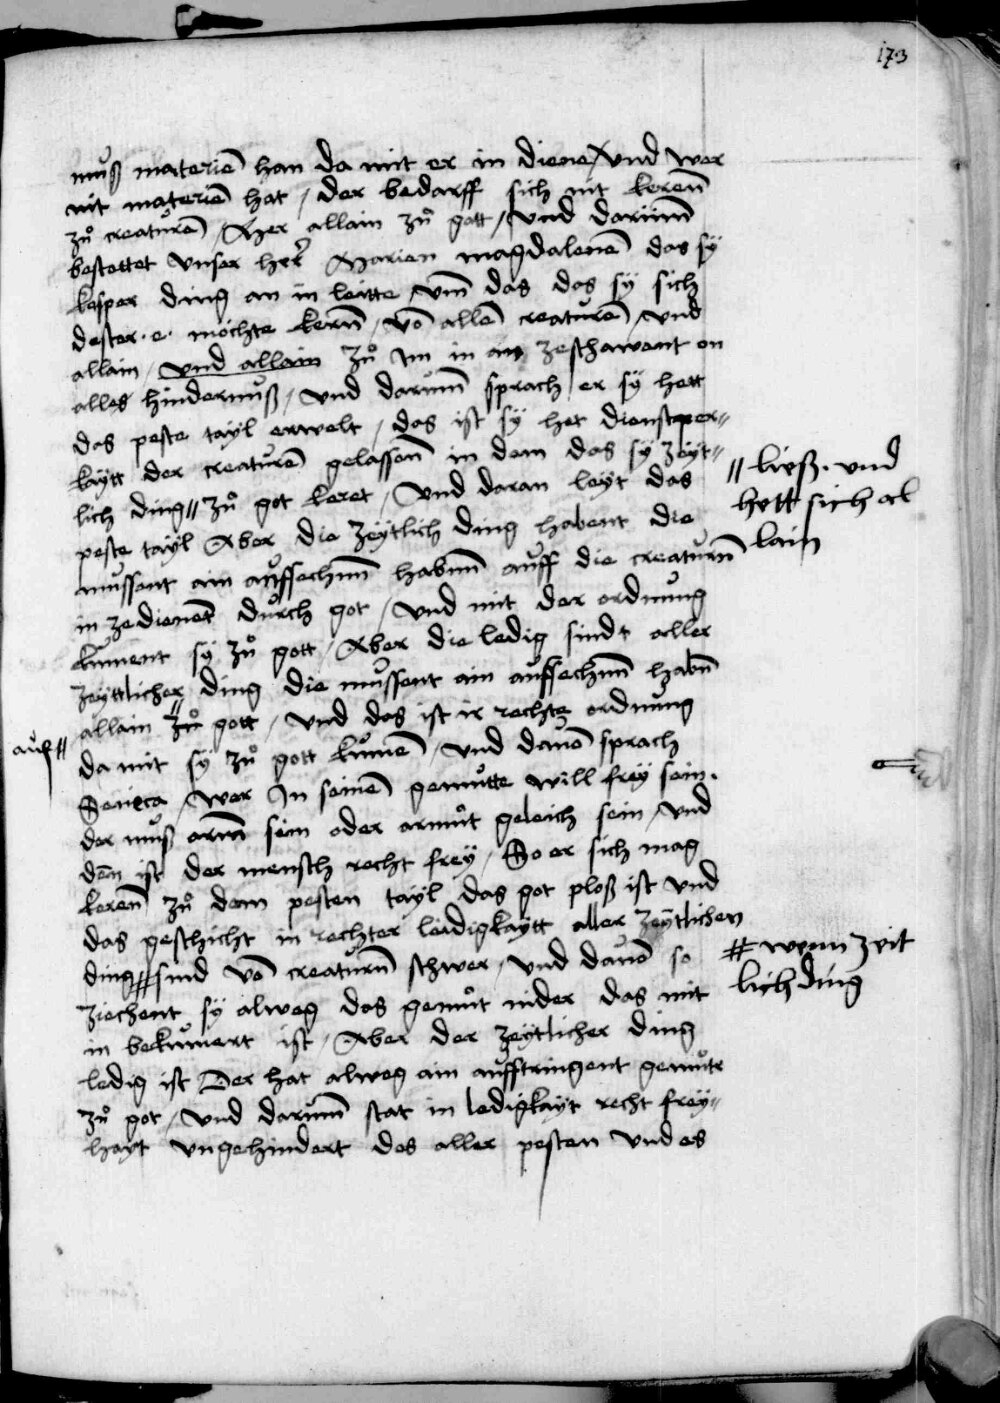 173
muß materiē han da mit er in diene / vnd wer
nit materiē hat / der bedarff sich nit kerēn
zů creaturē / Aber allain zů gott / vnd darūm̄
bestettet vnser her̄ Marien magdalenē das sy
kesper ding an in leitte / vm̄ das das sy sich
dester . e . möchte kern̄ / vō allē creaturē / vnd
allain / vnd allain zů Im in an zeschawent on
alles hindernuß / vnd darum̄ sprach er sy hett
das peste tayl erwelt / das ist sy het dienstper〃
kaytt der creaturē gelassen̄ in dem das sy zeyt〃
lich ding 〃 zů got keret / Vnd daran leyt das
〃 ließ . vnd
hett sich al
lain
peste tayl Aber die zeytlich ding habent die
mussent ain auffsechn̄ habn̄ auff die creaturn̄
in ze dienēt durch got / Vnd mit der ordnung
kument sy zů gott / Aber die ledig sindt aller
zeyttlicher ding die mussent ain auffsechn̄ habn̄
allain 〃 zů gott / Vnd das ist ir rechte ordnung
auf 〃
da mit sy zů gott kumē / Vnd dauō sprach
Seneca / wer In seinē gemutte will frey sein .
der muß arm̄ sein oder armůt geleich sein / Vnd
dēn ist der mensch recht frey / So er sich mag
kerēn zů dem pesten tayl das got ploß ist vnd
das geschicht in rechter leidigkaytt aller zeytlichen
ding # sind vō creaturn̄ schwer / Vnd dauō so
# wenn zeit
lich ding
ziechent sy alweg das gemůt nider das mit
in bekumert ist / Aber der zeytlicher ding
ledig ist Der hat alweg ain aufftringent gemůte
zů got / Vnd darum̄ stat in ledigkayt recht frey〃
hayt vngehindert des aller pesten Vnd es